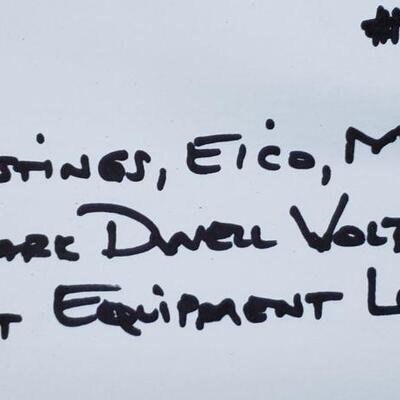 #
stings, Eico, M
ark Dwell Volt
t Equipment L